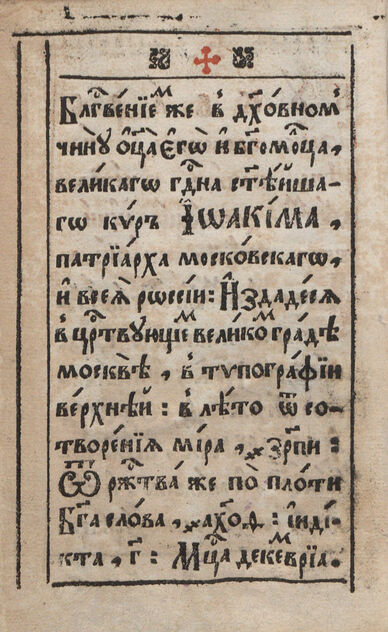 Блгⷭ҇ве́нїеⷨ же в̾ дх҃о́вномъ
чи́нꙋ ѻ҆ц҃а̀ є҆гѡ̀ и҆ бг҃омо́лца,
вели́кагѡ гдⷭ҇и́на ст҃ѣ́йша-
гѡ кѷ́ръ І҆ѡакі́ма,
патрїа́рха моско́вскагѡ,
и҆ всеѧ̀ рѡссі́и: И҆здаде́сѧ
в̾ црⷭ҇твꙋ́ющеⷨ вели́коⷨ гра́дѣ
москвѣ̀, в̾ тѷпогра́фїи
ве́рхнѣй: в̾ лѣ́то ѿ со-
творе́нїѧ мі́ра, ҂зр҃пи:
Ѿ ржⷭ҇тва́ же по пло́ти
Бг҃а сло́ва, ҂ах҃ѻѳ: і҆ндї-
кта, г҃: Мцⷭ҇а декеⷨврїа.